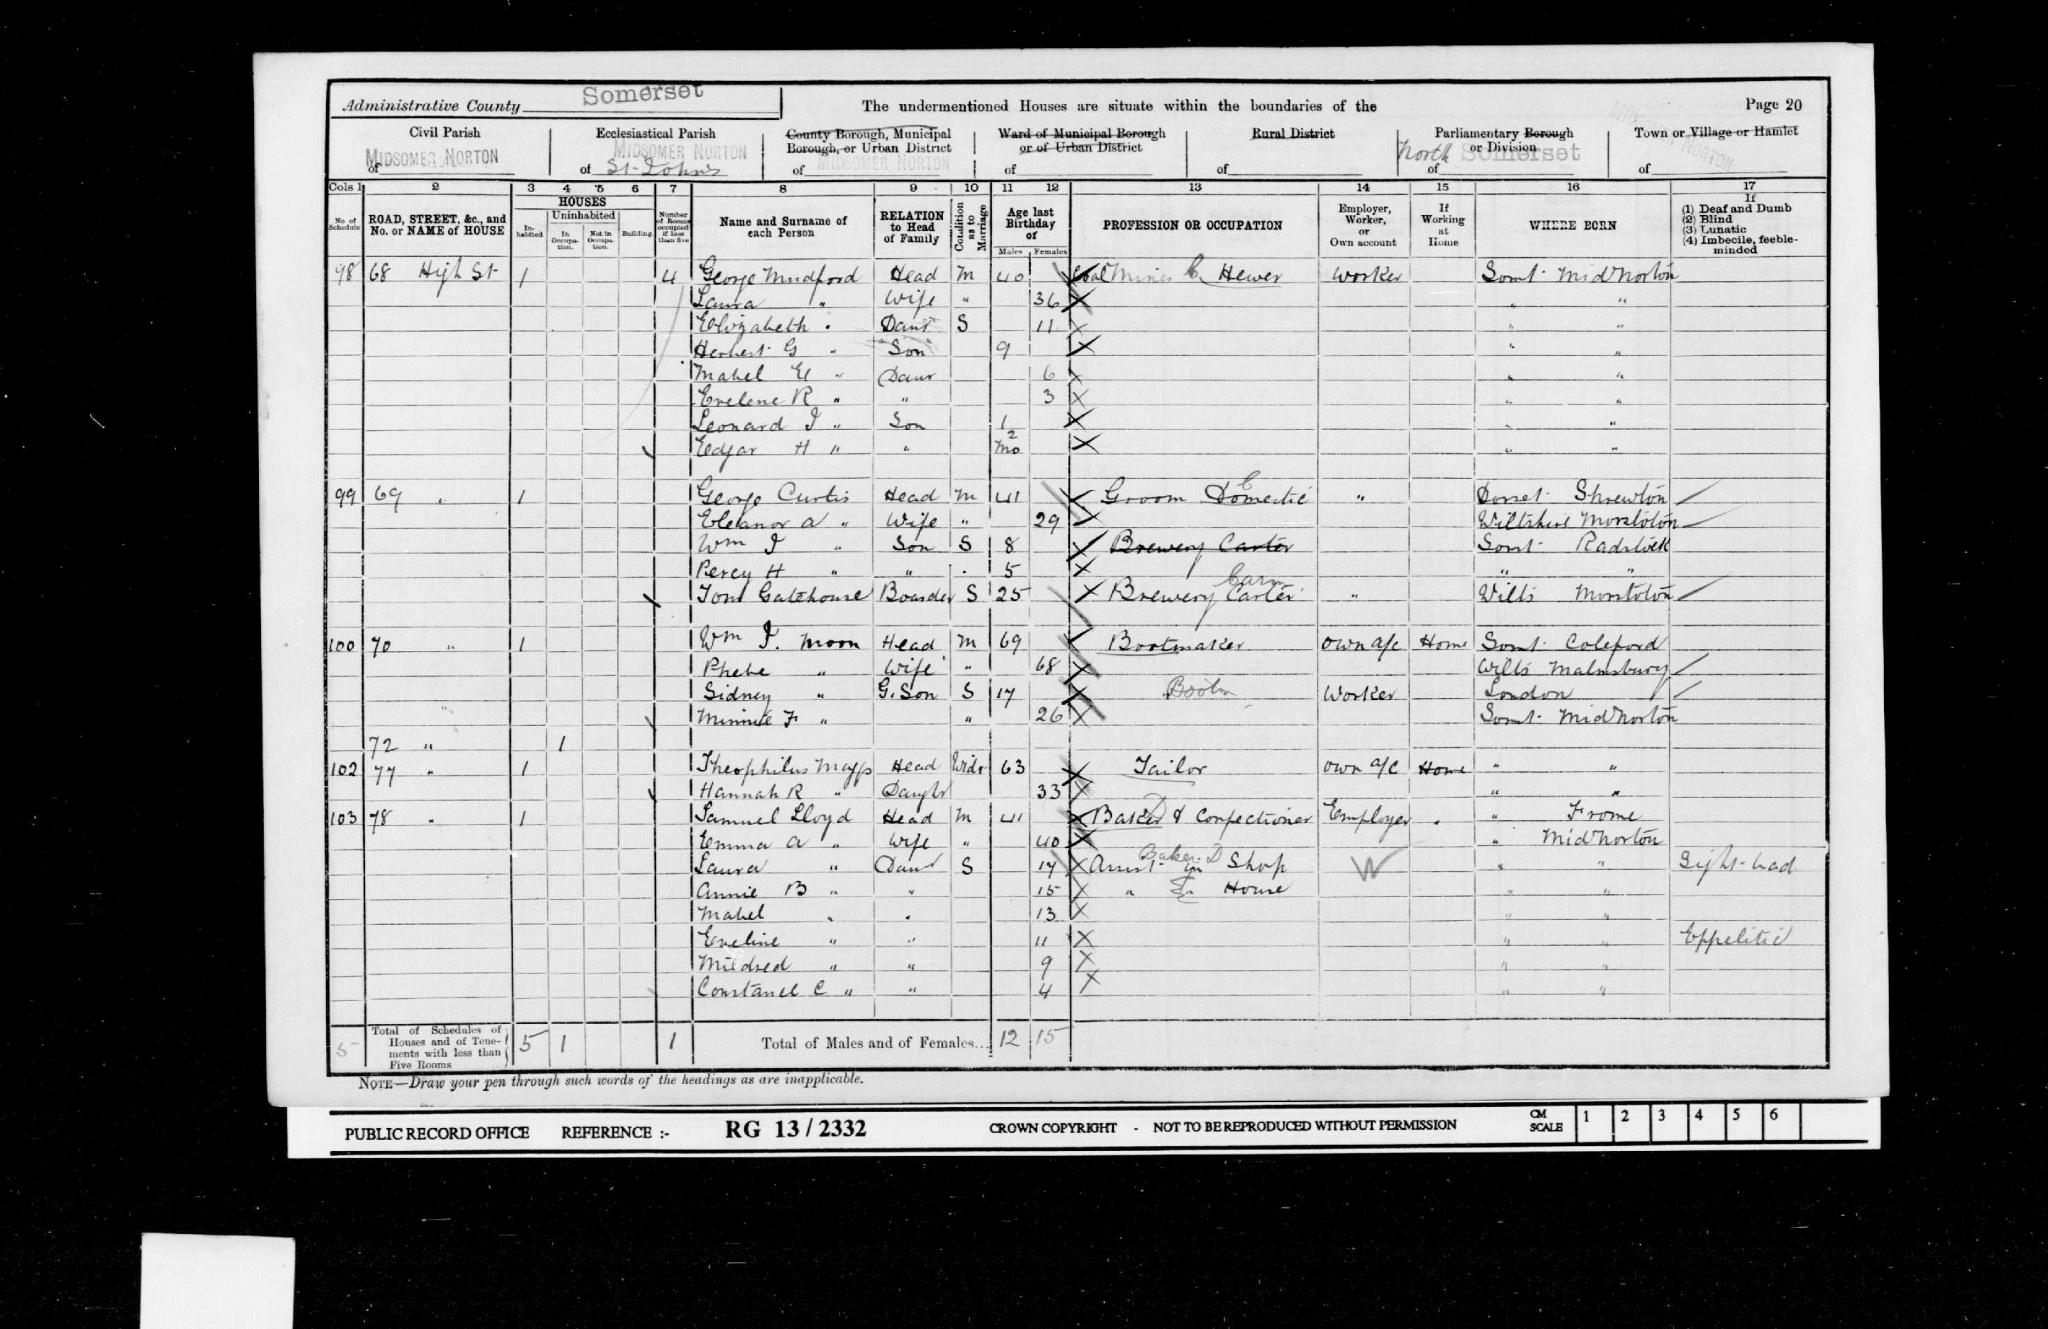 Administrative County Somerset The undermentioned Houses are situate within the boundaries of the Page 20
Civil Parish Ecclesiastical Parish County Borough, Municipal Borough, or Urban District Ward of Municipal Borough or of Urban District Rural District Parliamentary Borough or Division Town or Village or Hamlet
of MIDSOMER NORTON of MIDSOMER NORTON St. Johns of MIDSOMER NORTON of of of North Somerset of MIDSOMER NORTON
Cols 1 2 3 4 5 6 7 8 9 10 11 12 13 14 15 16 17
No. of Schedule ROAD, STREET, &c., and No. or NAME of HOUSE HOUSES Inhabited Uninhabited In Occupation. Not in Occupation. Building. Number of Rooms occupied if less than five Name and Surname of each Person RELATION to Head of Family Condition as to Marriage Age last Birthday of Males Females PROFESSION OR OCCUPATION Employer, Worker, or Own account If Working at Home WHERE BORN If (1) Deaf and Dumb (2) Blind (3) Lunatic (4) Imbecile, feeble-minded
98 68 High St 1 4 George Mudford Head M 40 Coal Miner C. Hewer Worker Somt. Mid Norton
Laura " Wife " 36 " "
Elizabeth " Daur S 11 " "
Herbert G " Son 9 " "
Mabel E " Daur 6 " "
Evelene R " " 3 " "
Leonard J " Son 1 " "
Edgar H " " 2 mo " "
99 69 " 1 George Curtis Head M 41 Groom Domestic " Dorset Shrewton
Eleanor A " Wife " 29 Wiltshire
Wm J " Son S 8 Brewery Carter Somt. Radstock
Percy H " " . 5 " "
Tom Gatehouse Boarder S 25 Brewery Carter Carm " Wilts
100 70 " 1 Wm J. Moon Head M 69 Bootmaker Own a/c Home Somt. Coleford
Phebe " Wife " 68 Wilts Malmsbury
Sidney " G. Son S 17 Bootm Worker London
Minnie F " " 26 Somt. Mid Norton
72 " 1
102 77 " 1 Theophilus Mapp Head Widr 63 Tailor Own a/c Home " "
Hannah R " Daughr 33 " "
103 78 " 1 Samuel Lloyd Head M 41 Baker & Confectioner Employer " " Frome
Emma A " Wife " 40 " Mid Norton
Laura " Daur S 17 Assist in Shop Baker D W " " Sight-bad
Annie B " " 15 " In House " "
Mabel " " 13 " "
Eveline " " 11 " " Eppelitic
Mildred " " 9 " "
Constance C " " 4 " "
5 Total of Schedules of Houses and of Tenements with less than Five Rooms 5 1 1 Total of Males and of Females... 12 15
NOTE—Draw your pen through such words of the headings as are inapplicable.
PUBLIC RECORD OFFICE REFERENCE :- RG 13 / 2332 CROWN COPYRIGHT - NOT TO BE REPRODUCED WITHOUT PERMISSION CM SCALE 1 2 3 4 5 6